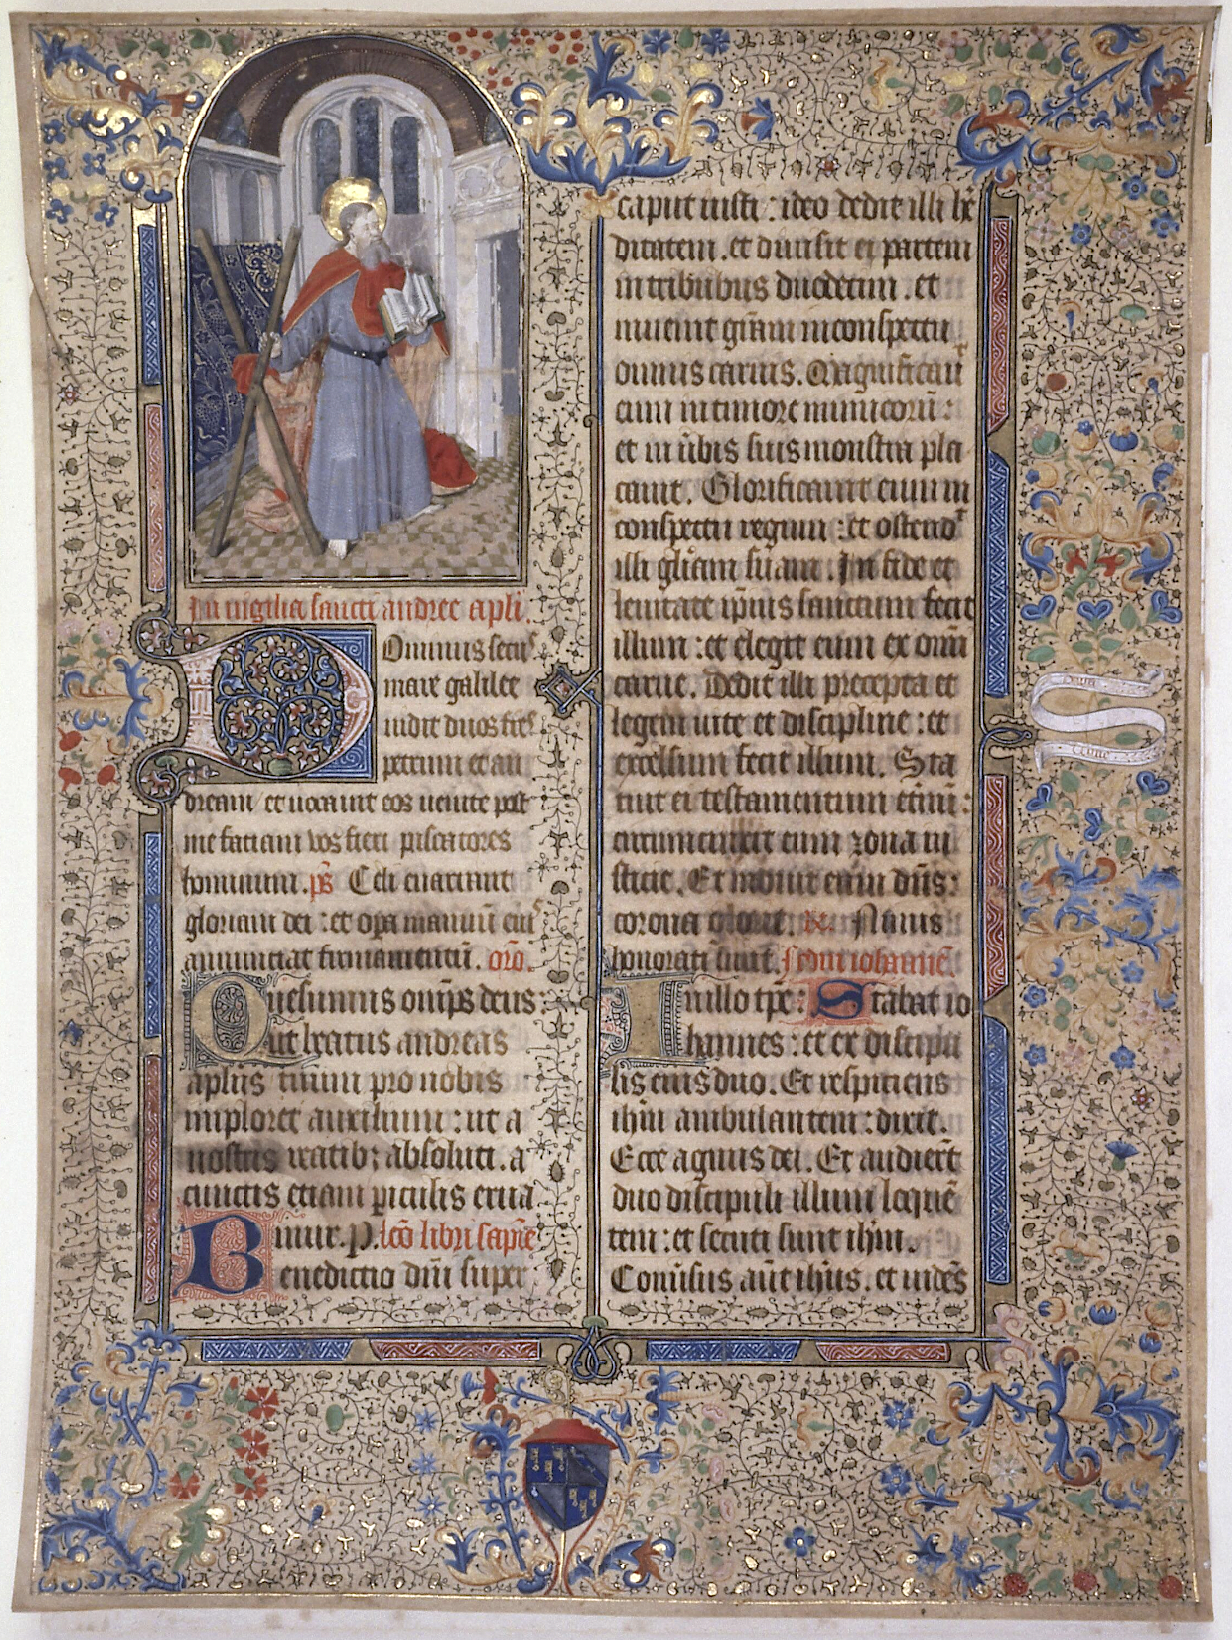 In vigilia sancti andree apli.
Dominus secus
mare galilee
vidit duos fres
petrum et an
dream et vocavit eos venite post
me faciam vos fieri piscatores
hominum. ps Celi enarrant
gloriam dei : et opa manuum eius
annunciat firmamentum. oro.
Quesumus omps deus :
ut beatus andreas
aplus tuum pro nobis
imploret auxilium : ut a
nostris reatib; absoluti. a
cunctis etiam piculis erua
mur. P. leco libri sapie
Benedictio dni super
caput iusti : ideo dedit illi he
ditatem. et divisit ei partem
in tribubus duodecim. et
invenit gram in conspectu
omnis carnis. Magnificavit
eum in timore inimicoru :
et in vbis suis monstra pla
cavit. Glorificavit eum in
conspectu regum : et ostendit
illi gliam suam. In fide et
lenitate ipius sanctum fecit
illum : et elegit eum ex omi
carne. Dedit illi precepta et
legem vite et discipline : et
excelsum fecit illum. Sta
tuit ei testamentum etnu :
circumcinxit eum zona iu
sticie. Et induit eum dns :
corona glorie. R. Nimis
honorati sunt. Secm iohanne.
In illo tpe : Stabat io
hannes : et ex discipu
lis eius duo. Et respiciens
ihm ambulantem : dixit.
Ecce agnus dei. Et audiert
duo discipuli illum loquen
tem : et secuti sunt ihm.
Conusus aut ihus. et videns